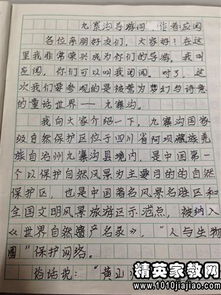 九寨沟导游词 作者应闲
各位亲朋好友们,大家好!在这
里我非常荣兴成为你们的导游,我叫
应闲,你们可以叫我闲闲,对了,这
次我们要参观的是披着梦幻与诗意
的童话世界——九寨沟。
我向大家介绍一下,九寨沟国家
级自然保护区位于四川省阿坝藏族羌
族自治州九寨沟县境内,是中国第一
个以保护自然风景为主要目的的自然
保护区,也是中国著名风景名胜区和
全国文明风景旅游区示范点,被纳入
《世界自然遗产名录》,"人与生物
圈"保护网络。
俗话说:"黄山
精英家教网
www.1010jiajiao.com